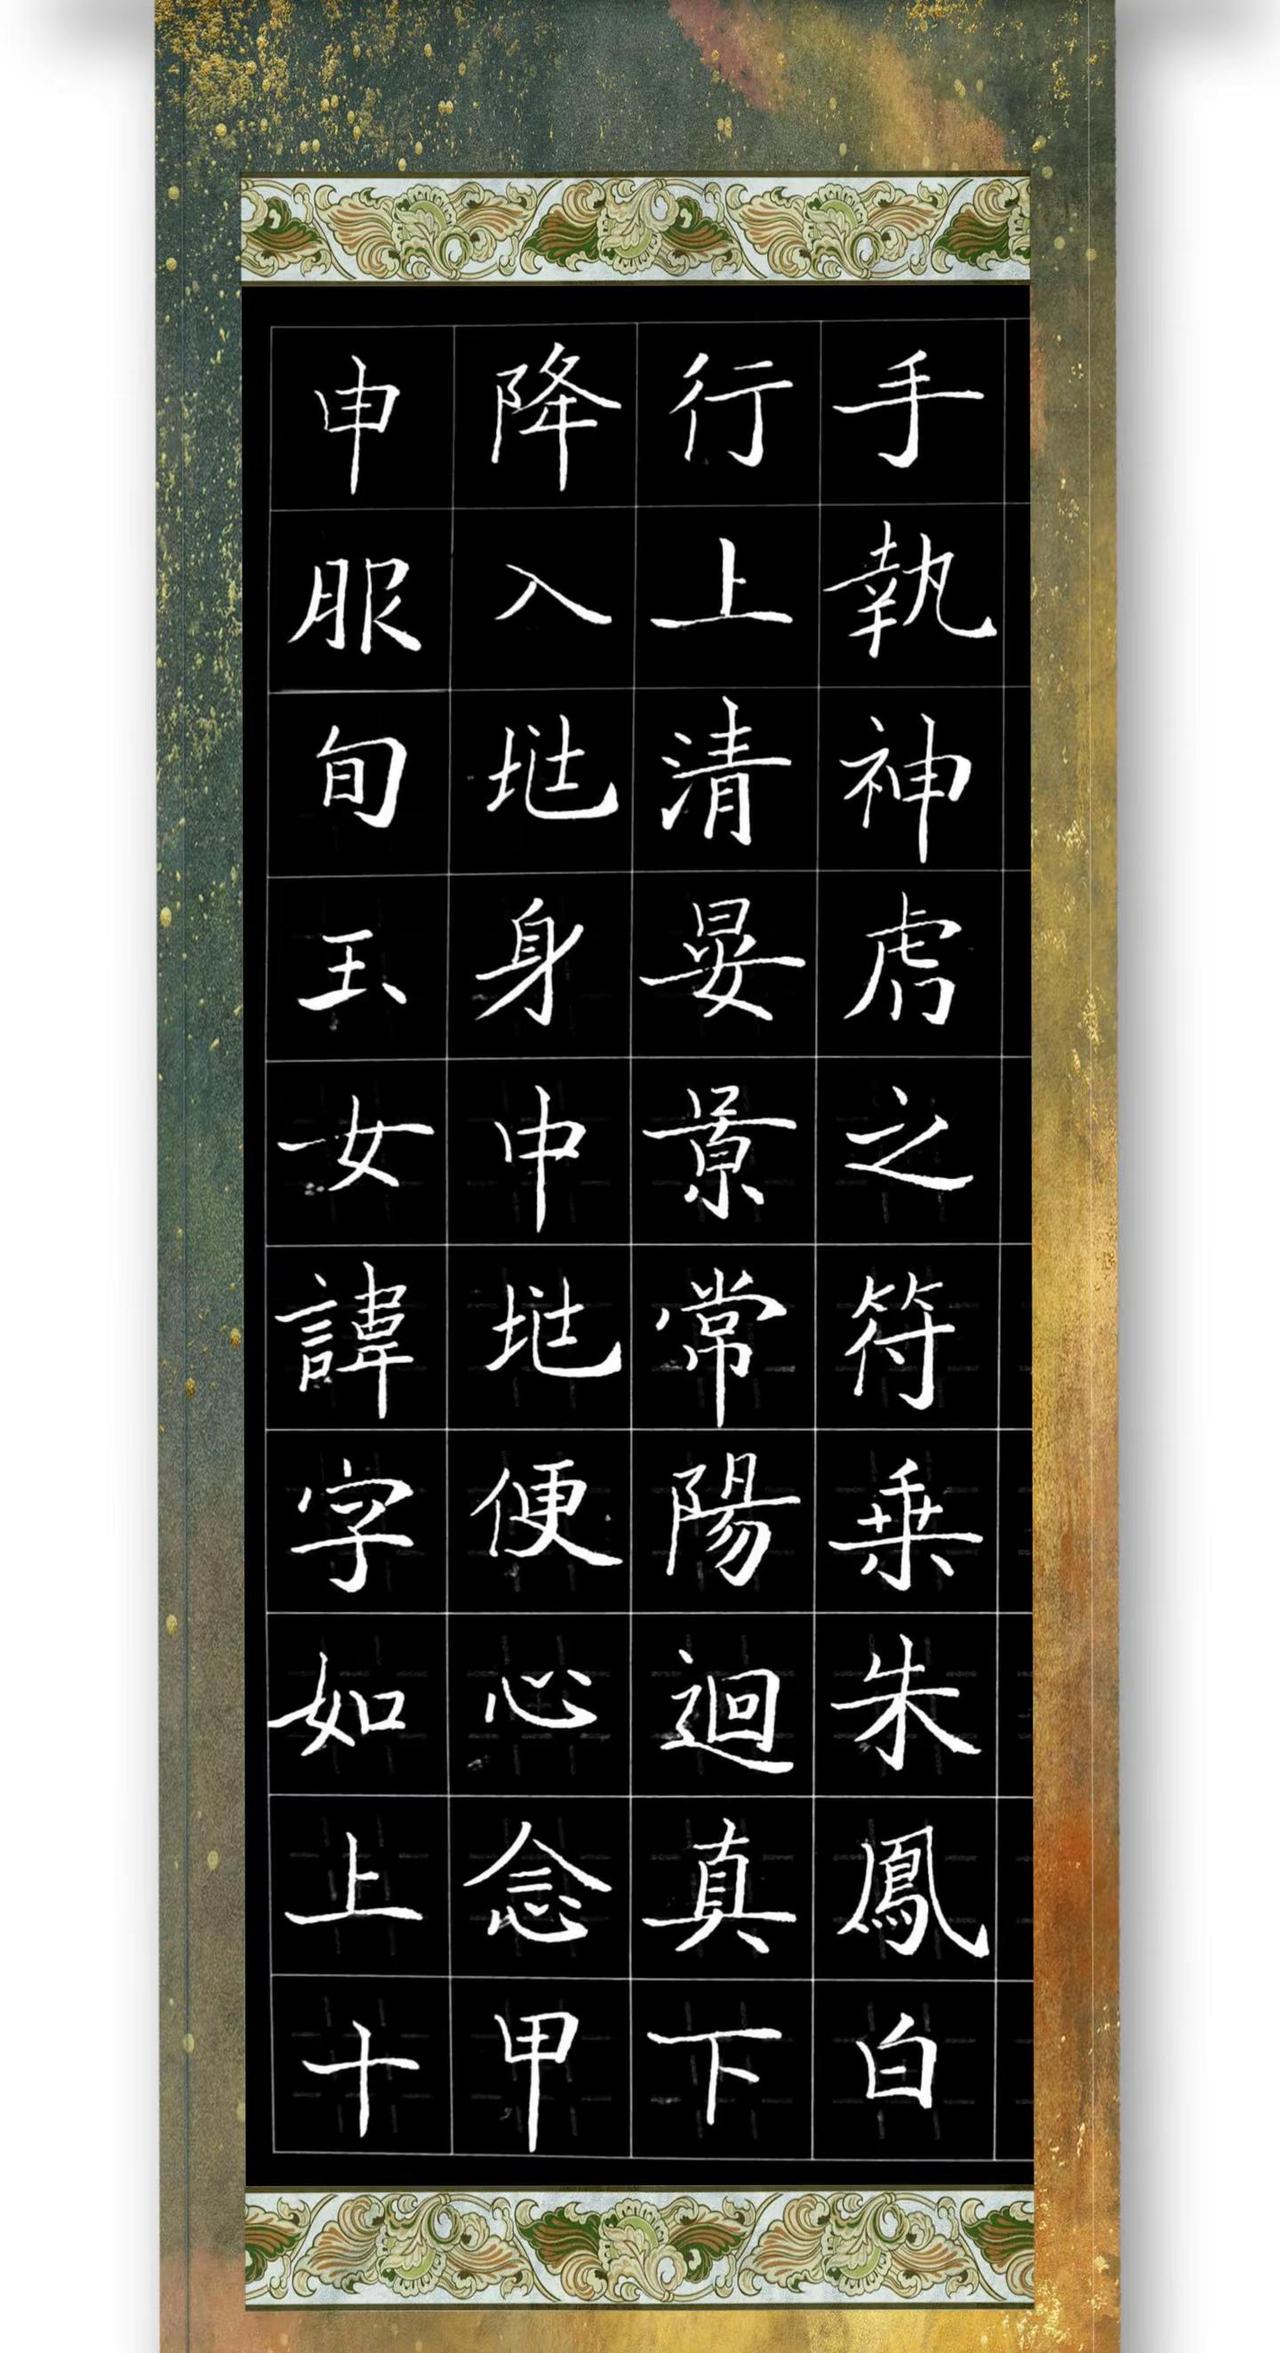 手執神虎之符乗朱鳳白
行上清晏景常陽迴真下
降入地身中地便心念甲
申服旬玉女諱字如上十